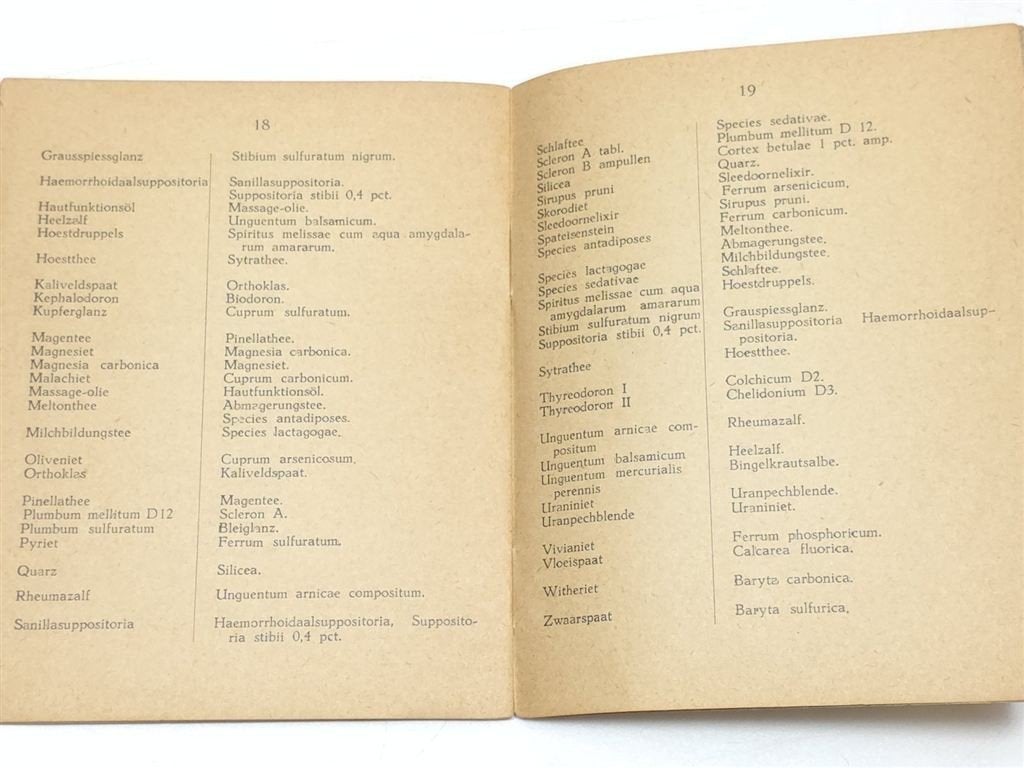 18
Grausspiessglanz Stibium sulfuratum nigrum.
Haemorrhoidaalsuppositoria Sanillasuppositoria.
Suppositoria stibii 0,4 pct.
Hautfunktionsöl Massage-olie.
Heelzalf Unguentum balsamicum.
Hoestdruppels Spiritus melissae cum aqua amygdala-
rum amararum.
Hoestthee Sytrathee.
Kaliveldspaat Orthoklas.
Kephalodoron Biodoron.
Kupferglanz Cuprum sulfuratum.
Magentee Pinellathee.
Magnesiet Magnesia carbonica.
Magnesia carbonica Magnesiet.
Malachiet Cuprum carbonicum.
Massage-olie Hautfunktionsöl.
Meltonthee Abmagerungstee.
Species antadiposes.
Milchbildungstee Species lactagogae.
Oliveniet Cuprum arsenicosum.
Orthoklas Kaliveldspaat.
Pinellathee Magentee.
Plumbum mellitum D12 Scleron A.
Plumbum sulfuratum Bleiglanz.
Pyriet Ferrum sulfuratum.
Quarz Silicea.
Rheumazalf Unguentum arnicae compositum.
Sanillasuppositoria Haemorrhoidaalsuppositoria, Supposito-
ria stibii 0,4 pct.
19
Schlaftee Species sedativae.
Scleron A tabl. Plumbum mellitum D 12.
Scleron B ampullen Cortex betulae 1 pct. amp.
Silicea Quarz.
Sirupus pruni Sleedoornelixir.
Skorodiet Ferrum arsenicicum.
Sleedoornelixir Sirupus pruni.
Spateisenstein Ferrum carbonicum.
Species antadiposes Meltonthee.
Abmagerungstee.
Species lactagogae Milchbildungstee.
Species sedativae Schlaftee.
Spiritus melissae cum aqua Hoestdruppels.
amygdalarum amararum
Stibium sulfuratum nigrum Grauspiessglanz.
Suppositoria stibii 0,4 pct. Sanillasuppositoria Haemorrhoidaalsup-
positoria.
Sytrathee Hoestthee.
Thyreodoron I Colchicum D2.
Thyreodoron II Chelidonium D3.
Unguentum arnicae com- Rheumazalf.
positum
Unguentum balsamicum Heelzalf.
Unguentum mercurialis Bingelkrautsalbe.
perennis
Uraniniet Uranpechblende.
Uranpechblende Uraniniet.
Vivianiet Ferrum phosphoricum.
Vloeispaat Calcarea fluorica.
Witheriet Baryta carbonica.
Zwaarspaat Baryta sulfurica.